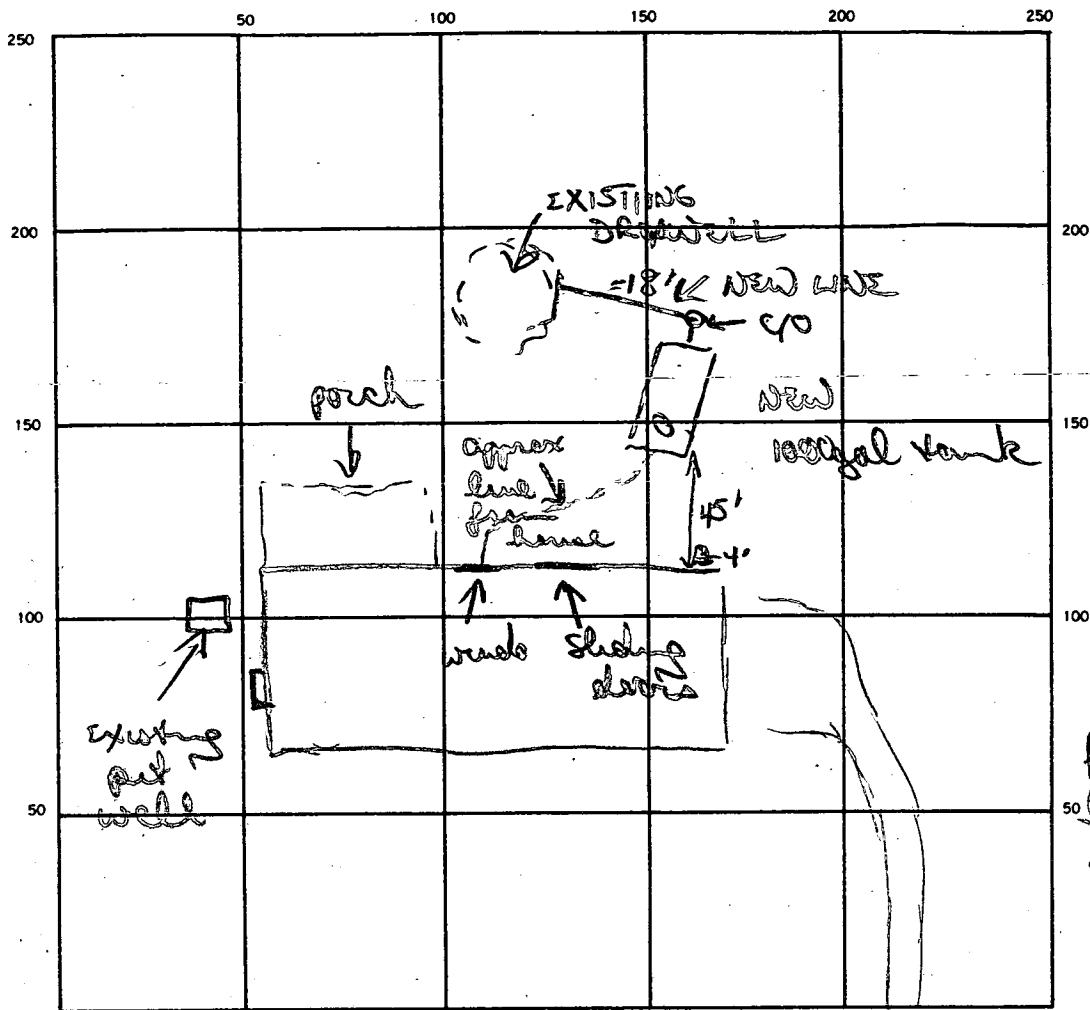 50 100 150 200 250
250
200 200
150
100 100
50 50
EXISTING
DRYWELL
=18' NEW LINE
C/O
porch
NEW
1000gal tank
approx
line
from
house
45'
windo
Sliding
doors
Existing
pit
well